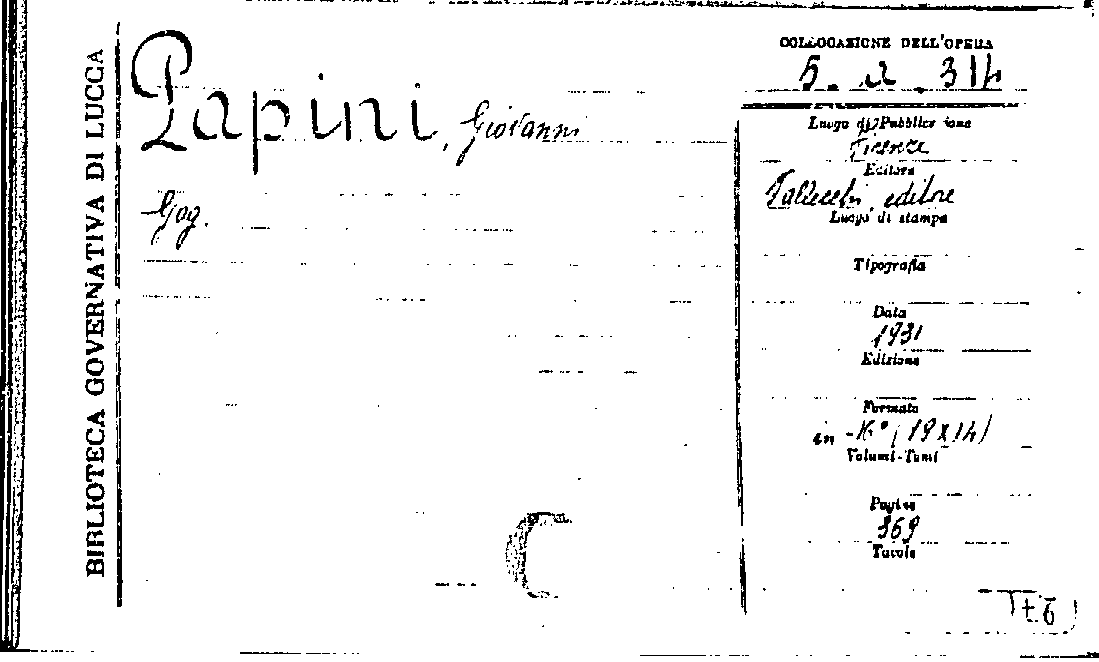 BIBLIOTECA GOVERNATIVA DI LUCCA
Papini, Giovanni
Gog.
COLLOCAZIONE DELL'OPERA
Luogo di Pubblicazione
Firenze
Editore
Vallecchi, editore
Luogo di stampa
Tipografia
Data
1931
Edizione
Formato
in -16° (19x14)
Volumi-Tomi
Pagine
369
Tavole
C